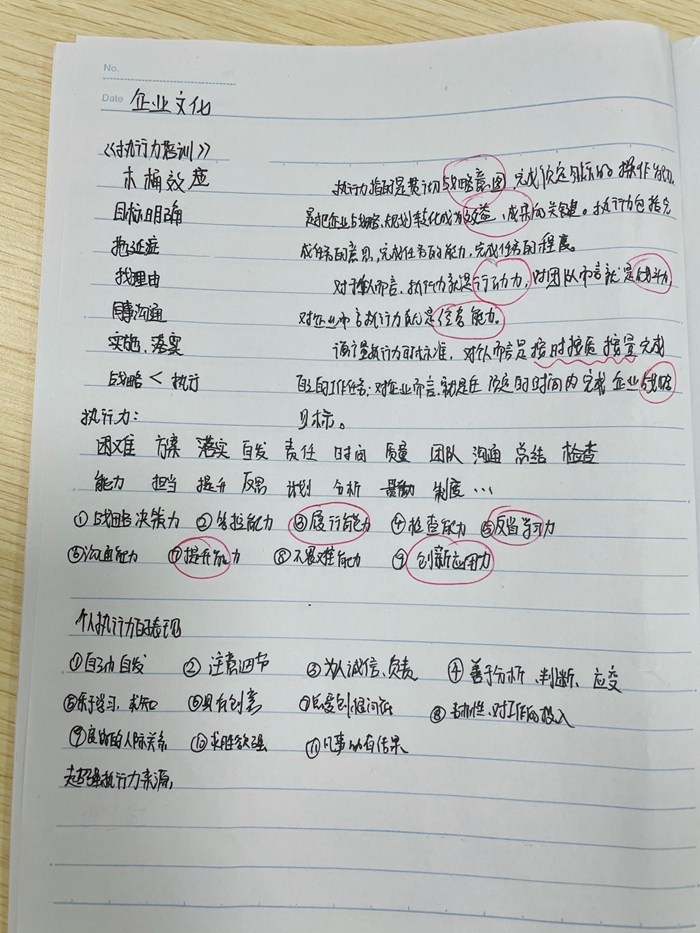 No.
Date 企业文化
《执行力培训》
木桶效应 执行力指的是贯彻战略意图,完成预定目标的操作能力,
目标明确 是把企业战略、规划转化成为效益、成果的关键。执行力包括完
拖延症 成任务的意思,完成任务的能力,完成任务的程度。
找理由 对个人而言,执行力就是行动力,对团队而言就是战斗力
同事沟通 对企业而言执行力就是经营能力。
实施、落实 衡量执行力的标准,对个人而言是按时按质按量完成
战略 < 执行 自己的工作任务;对企业而言,就是在预定的时间内完成企业战略
执行力: 目标。
困难 方案 落实 自发 责任 时间 质量 团队 沟通 总结 检查
能力 担当 提升 反思 计划 分析 制度 …
①战略决策力 ②管控能力 ③履行能力 ④检查能力 ⑤反省学习力
⑥沟通能力 ⑦提升能力 ⑧不畏难能力 ⑨创新应用力
个人执行力的表现
①自动自发 ②注意细节 ③为人诚信、负责 ④善于分析、判断、应变
⑤乐于学习、求知 ⑥具有创意 ⑦ ⑧ 对工作的投入
⑨良好的人际关系 ⑩求胜欲强 ⑪凡事
超强执行力来源,